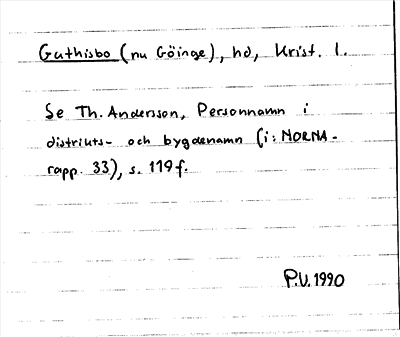 Guthisbo (nu Göinge), hd, Krist. l.
Se Th. Andersson, Personnamn i
distrikts- och bygdenamn (i: NORNA-
rapp. 33), s. 119 f.
P.V. 1990